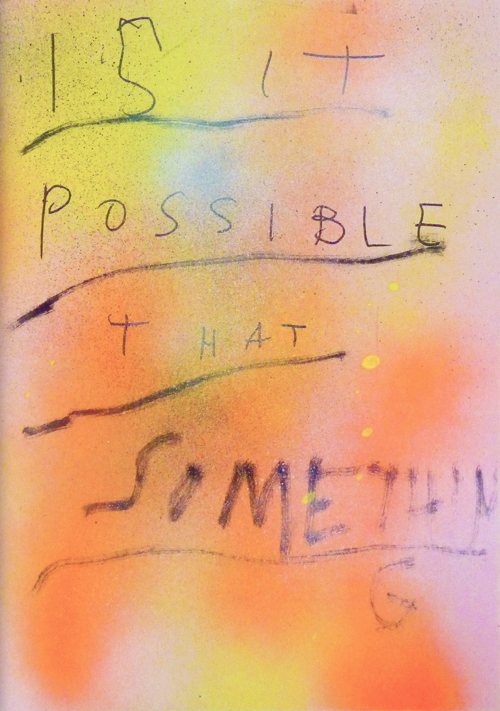 IS IT
POSSIBLE
THAT
SOMETHIN
G